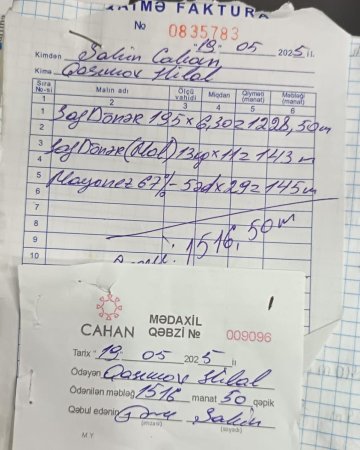 FAKTURA
№ 0835783
"19" 05 2025 il.
Kimdən Şahin Cahan
Kimə Qasımov Hilal
Sıra №-si Malın adı Ölçü vahidi Miqdarı Qiyməti (manat) Məbləği (manat)
1 2 3 4 5 6
1 Saf Dönər 195 x 6,30 = 1228,50 m
3
4 Saf Dönər (Mal) 13 kq x 11 = 143 m
5 Mayonez 67% - 5 əd x 29 = 145 m
6
7
8
9 1516,50 m
10
CAHAN
MƏDAXİL QƏBZİ № 009096
Tarix "19" 05 2025 il
Ödəyən Qasımov Hilal
Ödənilən məbləğ 1516 manat 50 qəpik
Qəbul edənin Şahin
(imzası) (soyadı)
M.Y